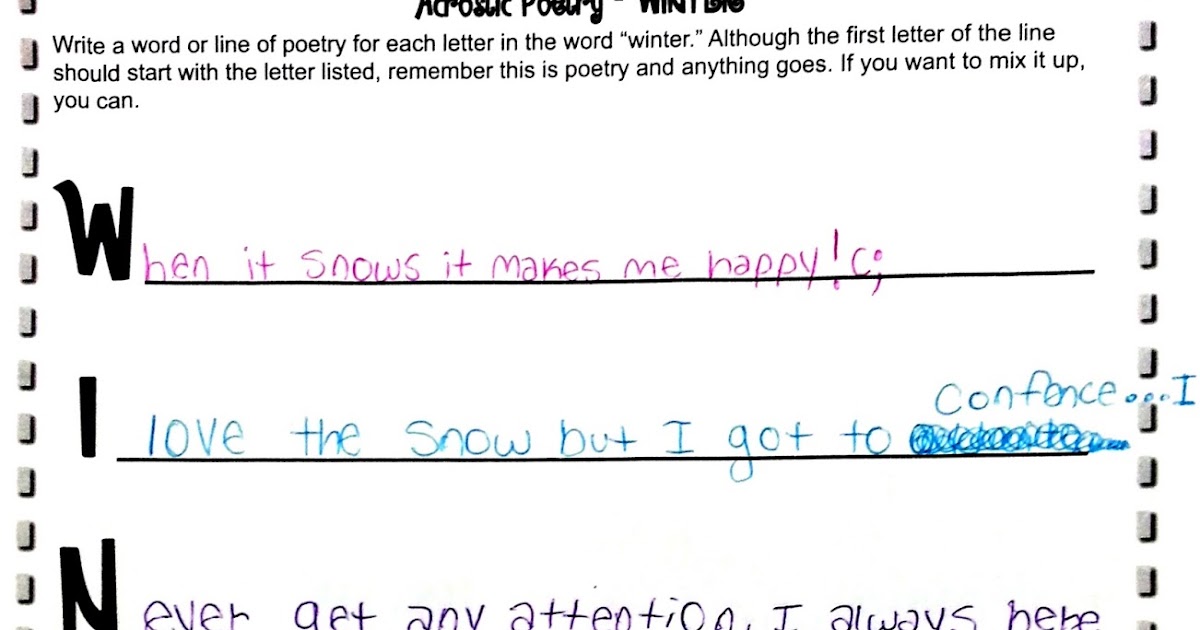 Acrostic Poetry - WINTER
Write a word or line of poetry for each letter in the word “winter.” Although the first letter of the line
should start with the letter listed, remember this is poetry and anything goes. If you want to mix it up,
you can.
When it snows it makes me happy! c;
Confence...I
I love the snow but I got to
Never get any attention. I always here